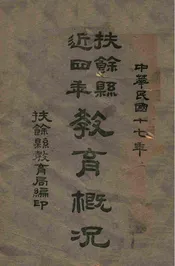 中華民國十七年
扶餘縣
近四年
教育概況
扶餘縣教育局編印